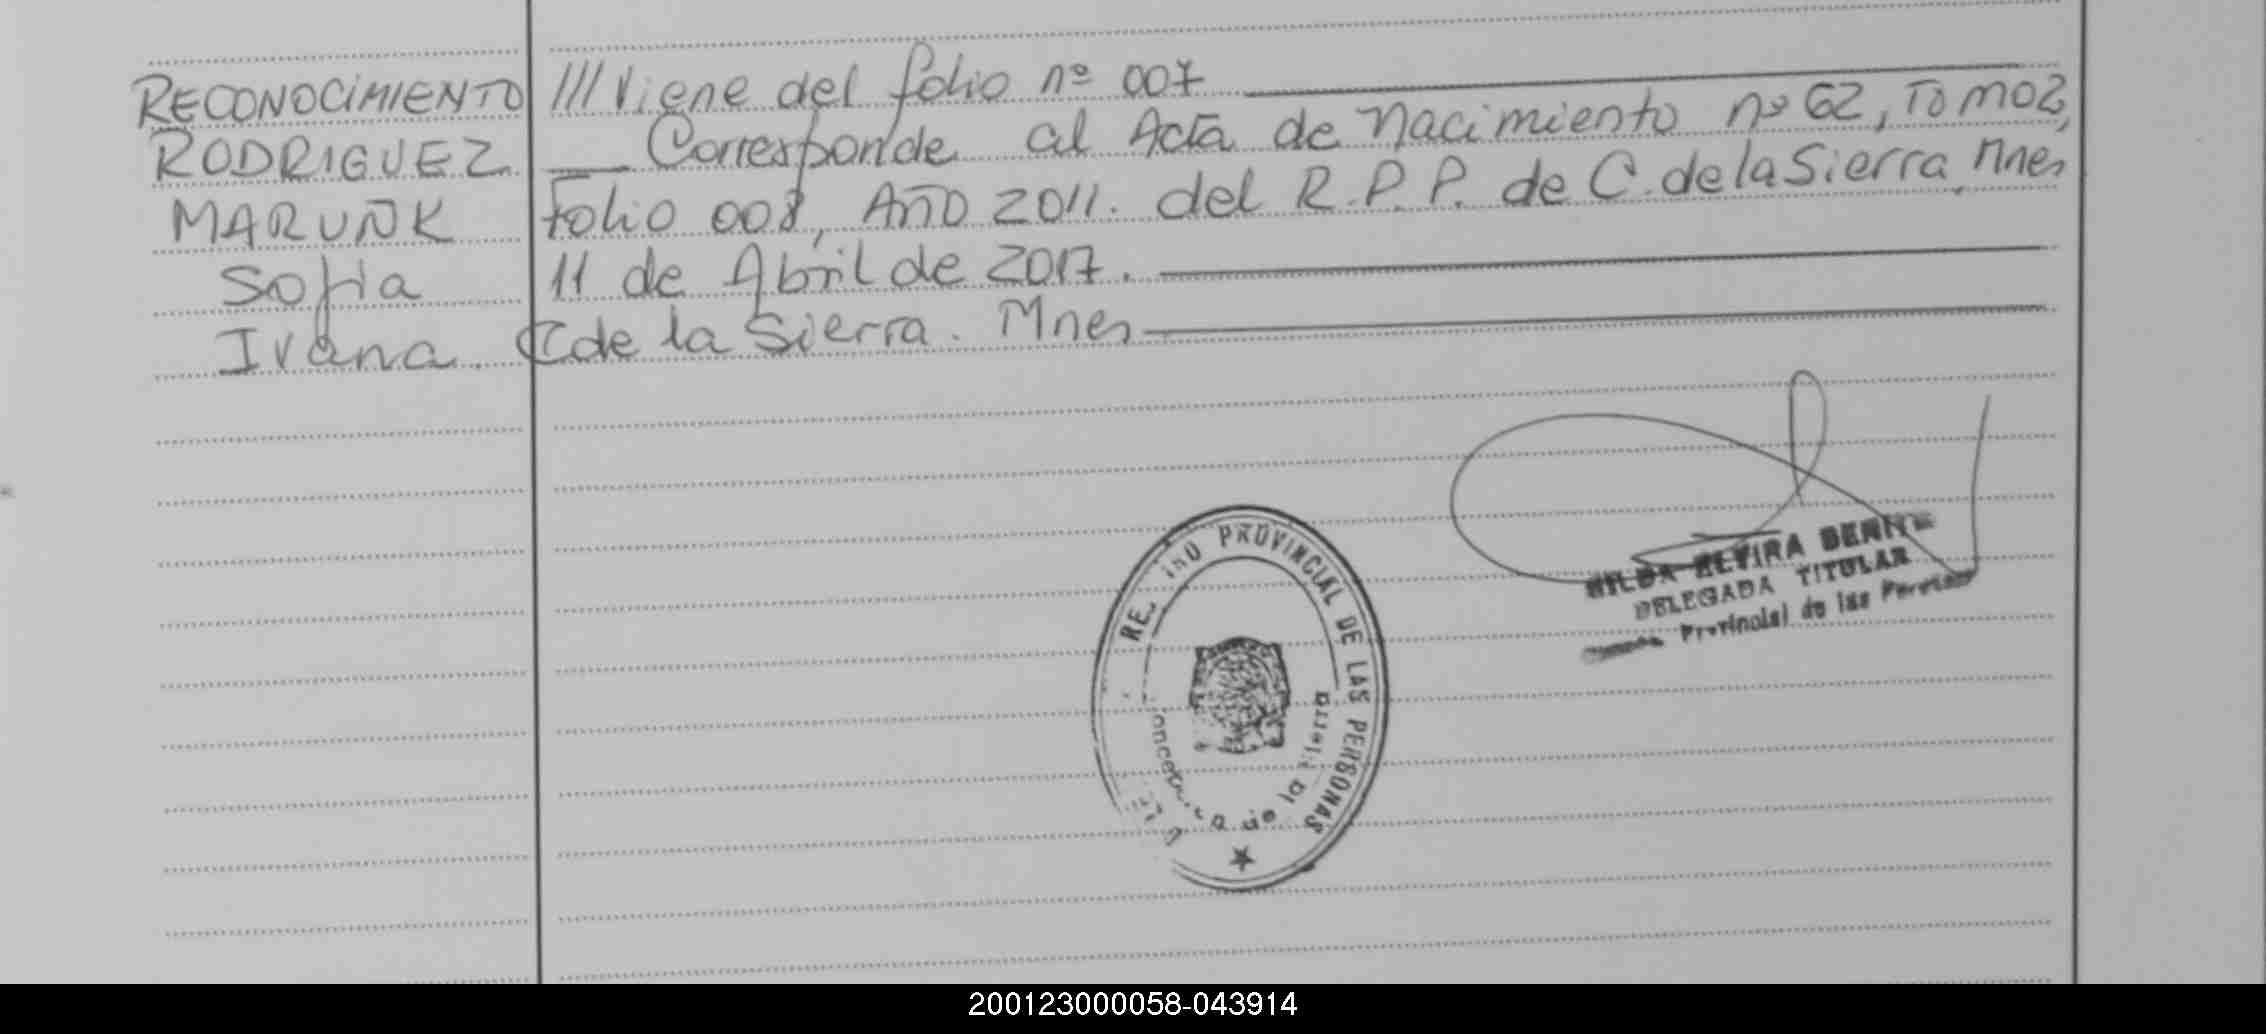 RECONOCIMIENTO
RODRIGUEZ
MARUÑK
Sofia
Ivana.
/// Viene del folio nº 007
Corresponde al Acta de Nacimiento nº 62, Tomo 2,
Folio 008, AÑO 2011. del R.P.P. de C. de la Sierra, Mnes
11 de Abril de 2017.
C de la Sierra. Mnes
PROVINCIAL DE LAS PERSONAS
de la
ELVIRA
DELEGADA TITULAR
Provincial de las
200123000058-043914